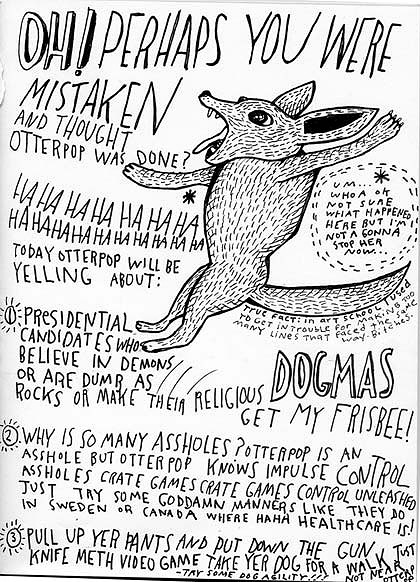 OH! PERHAPS YOU WERE
MISTAKEN
AND THOUGHT
OTTERPOP WAS DONE?
HA HA HA HA HA HA HA
HAHAHAHAHAHAHAHAHA
TODAY OTTERPOP WILL BE
YELLING ABOUT:
UM...
WHOA OK
NOT SURE
WHAT HAPPENED
HERE BUT I'M
NOT A GONNA
STOP HER
NOW...
TRUE FACT: in art school I used
TO GET IN TROUBLE FOR MAKING TOO
MANY LINES THAT FACED THE SAME
WAY. BITCHES.
① PRESIDENTIAL
CANDIDATES WHO
BELIEVE IN DEMONS
OR ARE DUMB AS
ROCKS OR MAKE THEIR RELIGIOUS DOGMAS
GET MY FRISBEE!
② WHY IS SO MANY ASSHOLES? OTTERPOP IS AN
ASSHOLE BUT OTTERPOP KNOWS IMPULSE CONTROL
ASSHOLES CRATE GAMES CRATE GAMES CONTROL UNLEASHED
JUST TRY SOME GODDAMN MANNERS LIKE THEY DO
IN SWEDEN OR CANADA WHERE HAHA HEALTHCARE IS!
③ PULL UP YER PANTS AND PUT DOWN THE GUN
KNIFE METH VIDEO GAME TAKE YER DOG FOR A WALK JUST
NOT NEAR
OTTERPOP
-TRY SOME DOG AGILITY!